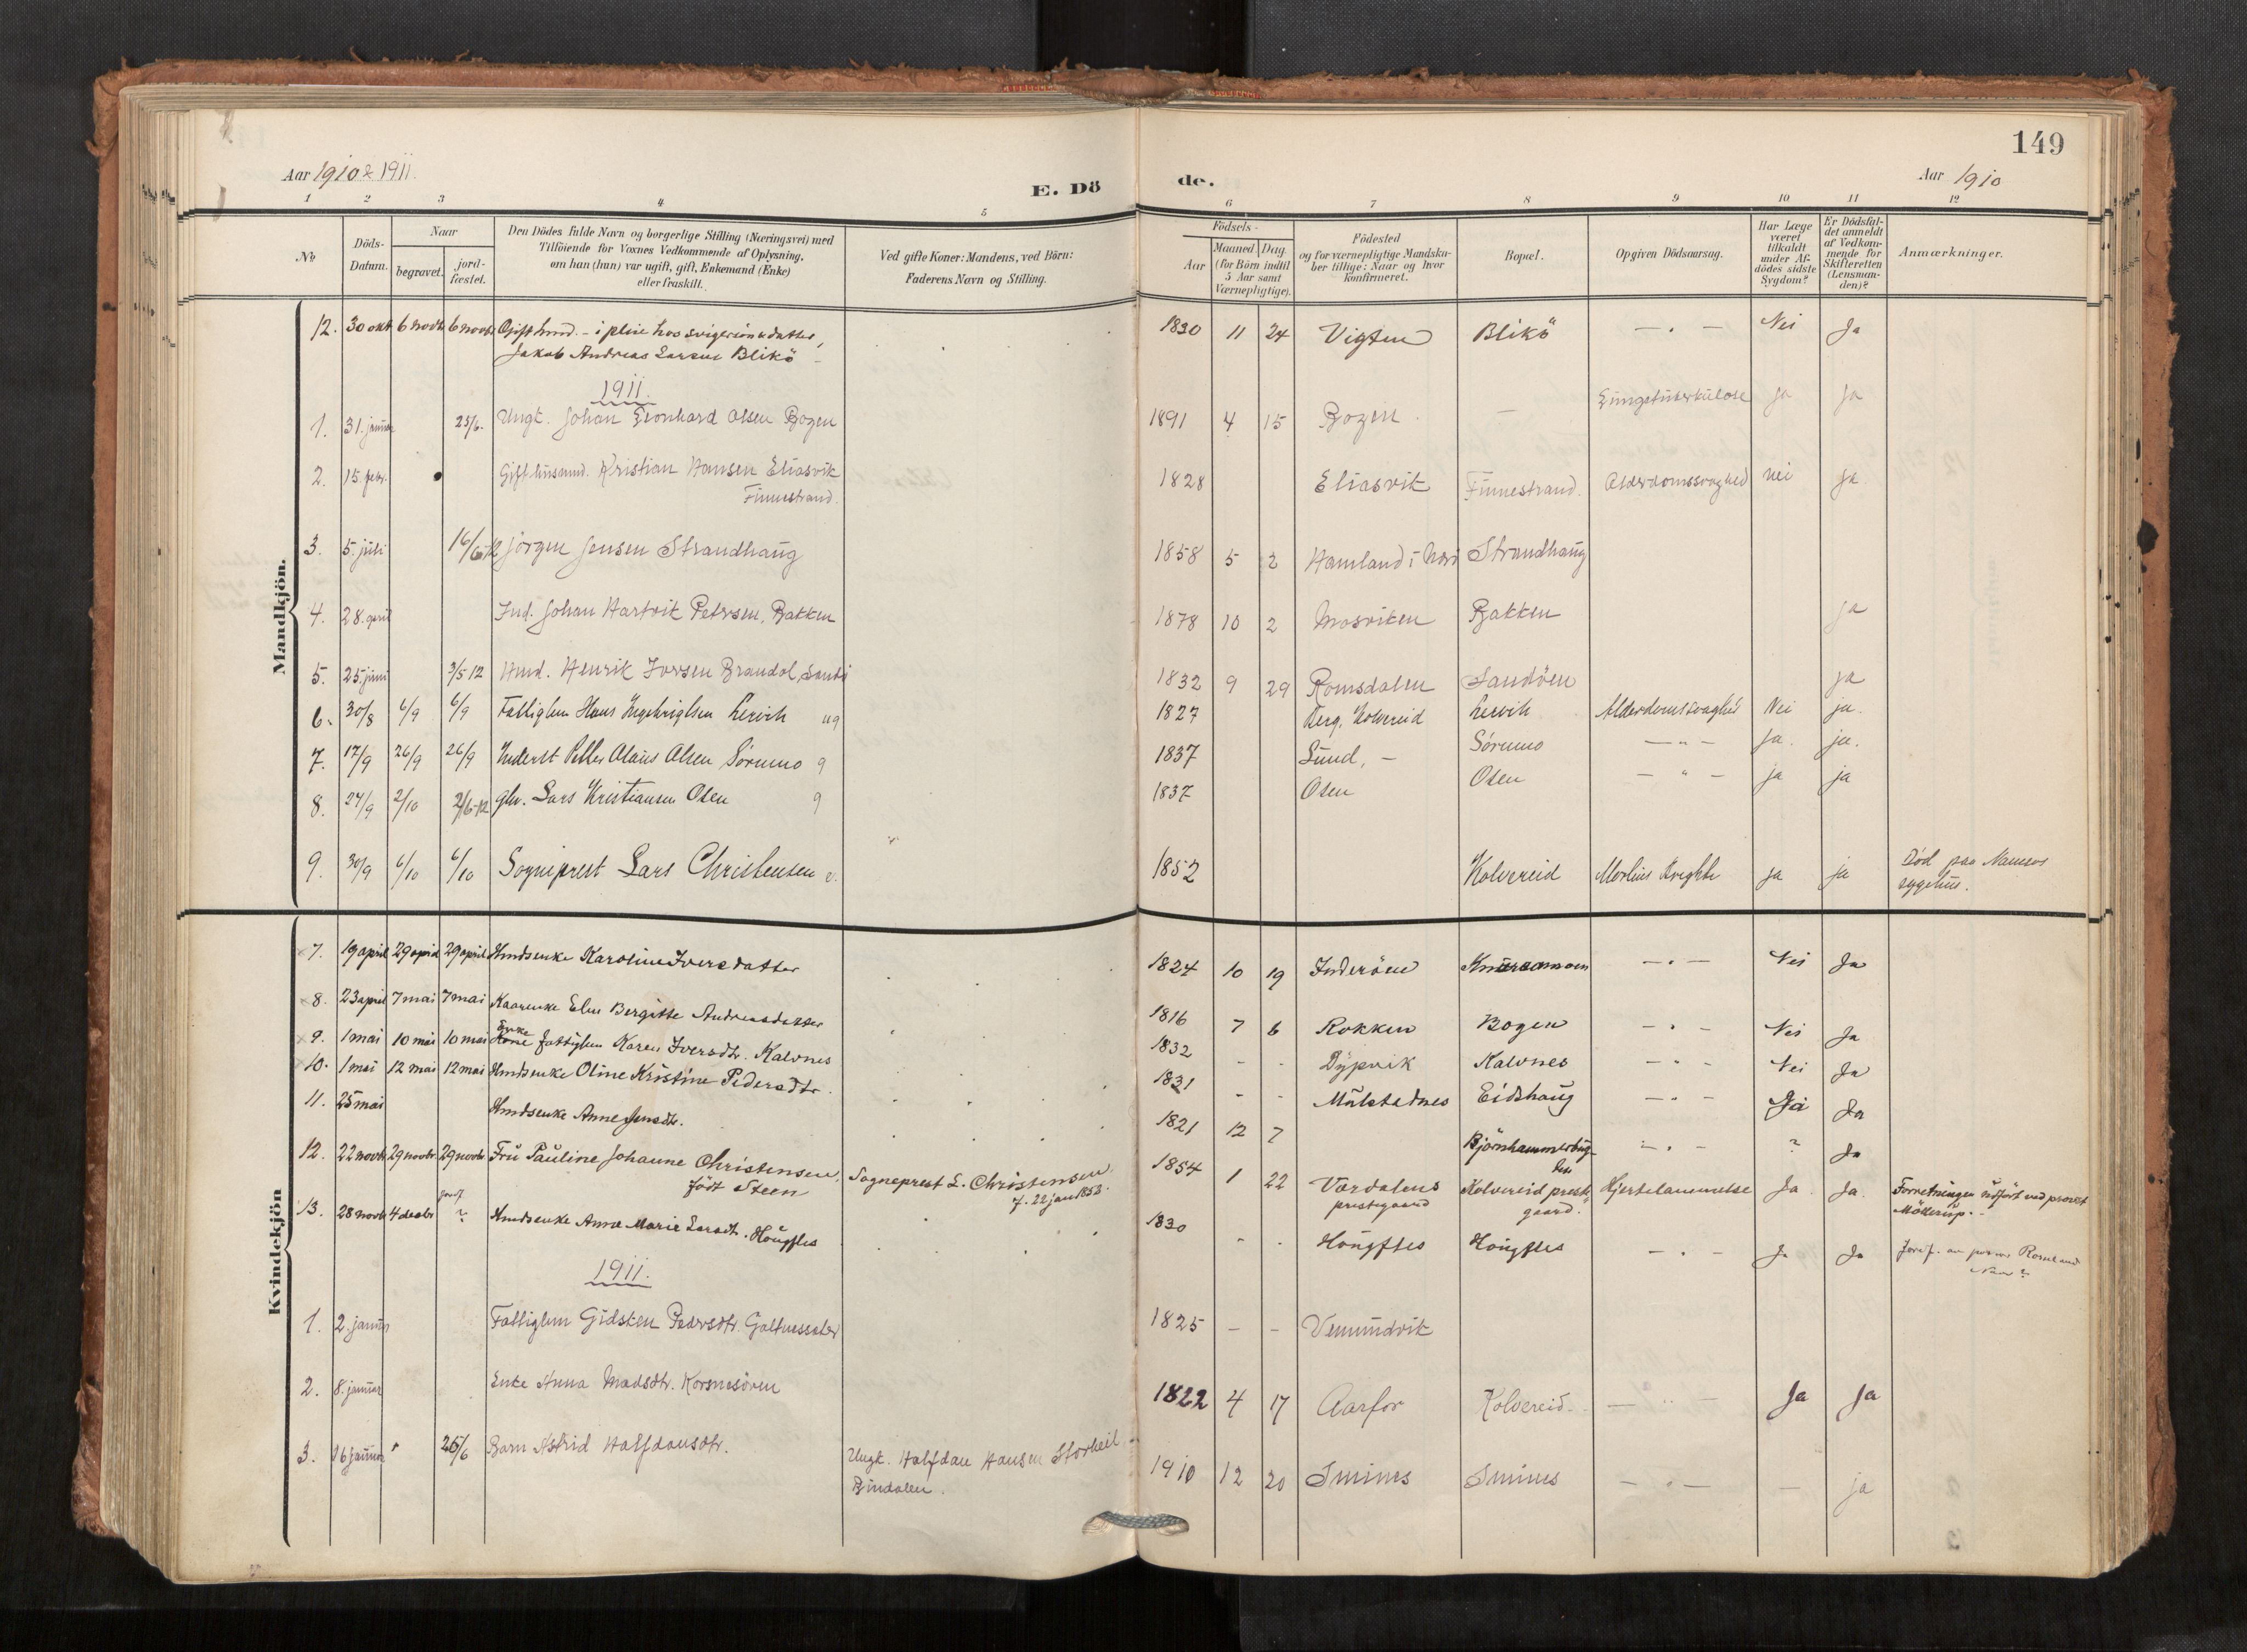 149
Aar 1910 & 1911.
E. Dö
de.
Aar 1910
1 2 3 4 5 6 7 8 9 10 11 12
No
Döds-Datum.
Naar
begravet.
jord-fæstet.
Den Dödes fulde Navn og borgerlige Stilling (Næringsvei) med
Tilföiende for Voxnes Vedkommende af Oplysning,
om han (hun) var ugift, gift, Enkemand (Enke)
eller fraskilt.
Ved gifte Koner: Mandens, ved Börn:
Faderens Navn og Stilling.
Födsels-
Aar
Maaned. Dag.
(for Börn indtil
5 Aar samt
Værnepligtige).
Födested
og for værnepligtige Mandskaber
tillige: Naar og hvor
konfirmeret.
Bopæl.
Opgiven Dödsaarsag.
Har Læge
været
tilkaldt
under Af-
dödes sidste
Sygdom?
Er Dödsfal-
det anmeldt
af Vedkom-
mende for
Skifteretten
(Lensman-
den)?
Anmærkninger.
Mandkjön.
12. 30 okt 6 novb 6 novb Gift hmd. - i pleie hos svigersön & datter, 1830 11 24 Vigten Blikö — " — Nei Ja
Jakob Andreas Larsen Blikö
1911.
1. 31. januar 25/6. Ungk. Johan Leonhard Olsen Bogen 1891 4 15 Bogen — Lungetuberkulose Ja Ja
2. 15. febr. Gift husmd. Kristian Hansen Eliasvik 1828 Eliasvik Finnestrand. Alderdomssvaghed Nei Ja
Finnestrand.
3. 5. juli 16/6-12 Jörgen Jensen Strandhaug 1858 5 2 Hamland i Strandhaug
4. 28. april Ind. Johan Hartvik Petersen, Bakken 1878 10 2 Mosviken Bakken ja
5. 25. juni 3/5 12 Hmd. Henrik Iversen Brandal, 1832 9 29 Romsdalen Sandöen ja
6. 30/8 6/9 6/9 Fattiglem Hans Lervik ug 1827 Kolvereid Lervik Alderdomssvaghed Nei ja.
7. 17/9 26/9 26/9 Inderst Petter Olaus Olsen Sörumo g 1837 Sund, — Sörumo — " — ja. ja.
8. 24/9 2/10 2/6-12 Lars Kristiansen Osen g 1837 Osen Osen — " — ja ja
9. 30/9 6/10 6/10 Sogneprest Lars Christensen e. 1852 Kolvereid Morbus ja ja Död paa Namsos
sygehus.
Kvindekjön
7. 19 april 29 april 29 april Hmdsenke Karoline Iversdatter 1824 10 19 Inderöen — " — Nei Ja
8. 23 april 7 mai 7 mai Kaarenke Elen Bergitte Andreasdatter 1816 7 6 Rokken Bogen — " — Nei Ja
9. 1 mai 10 mai 10 mai Enke fattiglem Karen Iversdtr. Kalvnes 1832 - - Dypvik Kalvnes — " — Nei Ja
10. 1 mai 12 mai 12 mai Hmdsenke Oline Kristine Pedersdtr. 1831 - - Eidshaug — " — Ja Ja
11. 25 mai Hmdsenke Anne Jensdtr. 1821 12 7 — " — ? Ja
12. 22 novb 29 novbr. 29 novbr. Fru Pauline Johanne Christensen, Sogneprest L. Christensen 1854 1 22 Værdalens Kolvereid prest- Hjertelammelse Ja Ja. Forretningen udfört ved provst
född Steen f. 22 jan 1852. prestegaard gaard. Möllerup. -
13. 28 novb 4 decbr ? Hmdsenke Anne Marie Larsdtr. Höugfles 1830 - - Höugfles Höugfles — " — Ja Ja
1911.
1. 2. januar Fattiglem Gidsken Pedersdtr. Galtnesseter 1825 — — Vemundvik
2. 8. januar Enke Anna Madsdtr. Korsnesören 1822 4 17 Aarfor Kolvereid. — " — Ja Ja
3. 16 januar 25/6 Barn Astrid Halfdansdtr. Ungk. Halfdan Hansen Storheil 1910 12 20 Smines Smines — " — — ja
Bindalen.